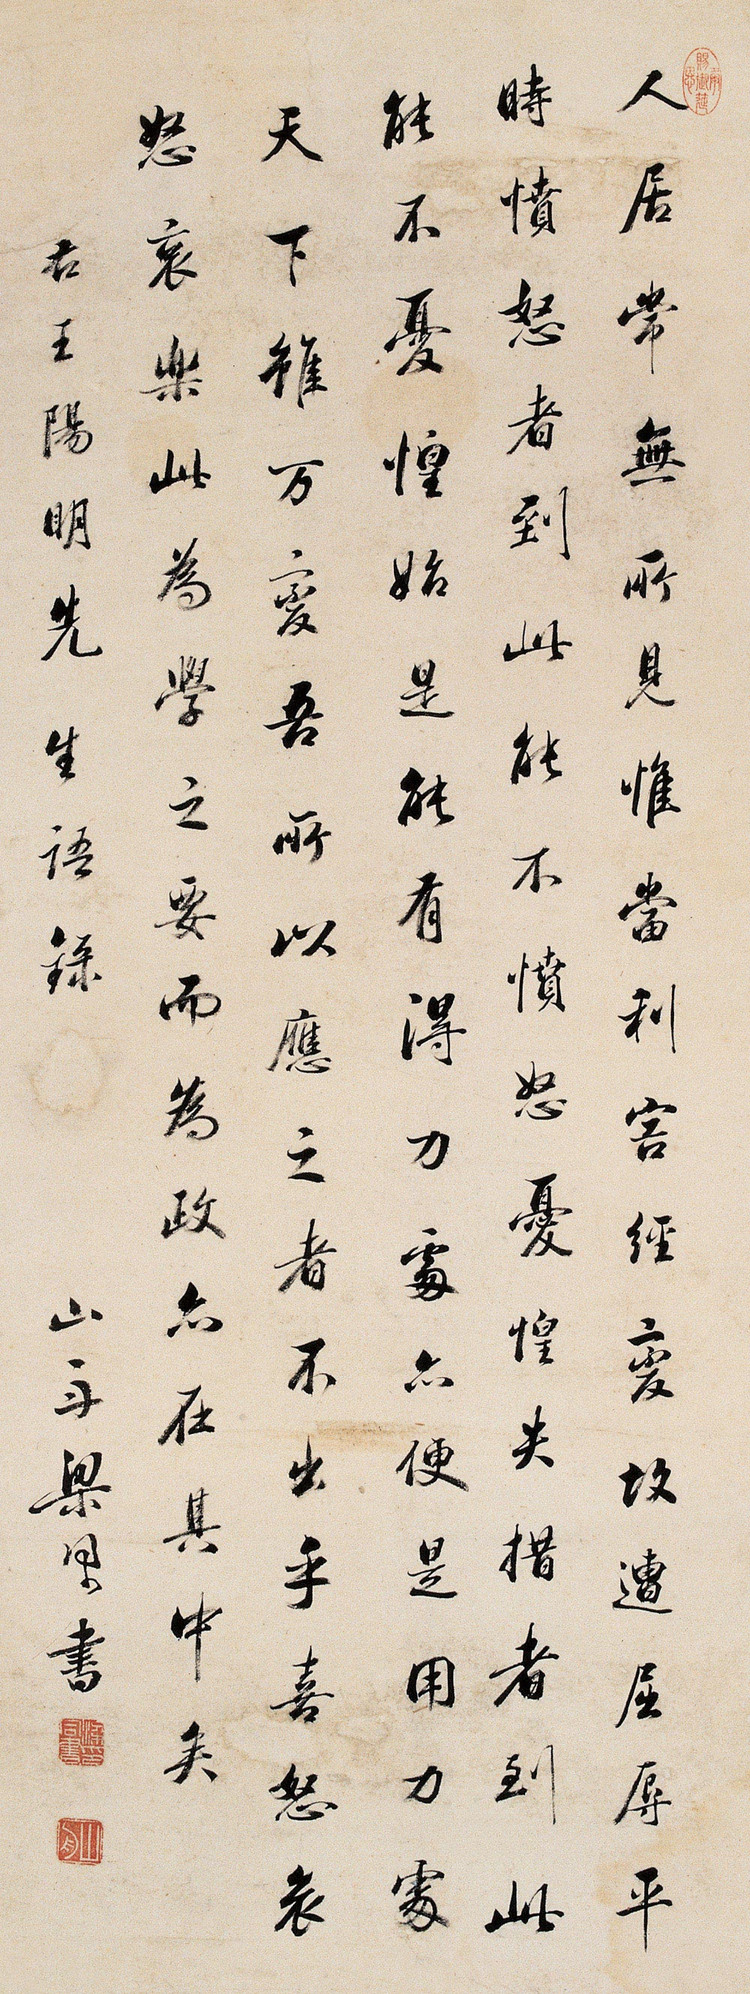 人居常無所見惟當利害經變故遭屈辱平
時憤怒者到此能不憤怒憂惶失措者到此
能不憂惶始是能有得力處亦便是用力處
天下雖万變吾所以應之者不出乎喜怒哀
怒哀樂此為學之要而為政亦在其中矣
右王陽明先生語錄
山舟梁同書